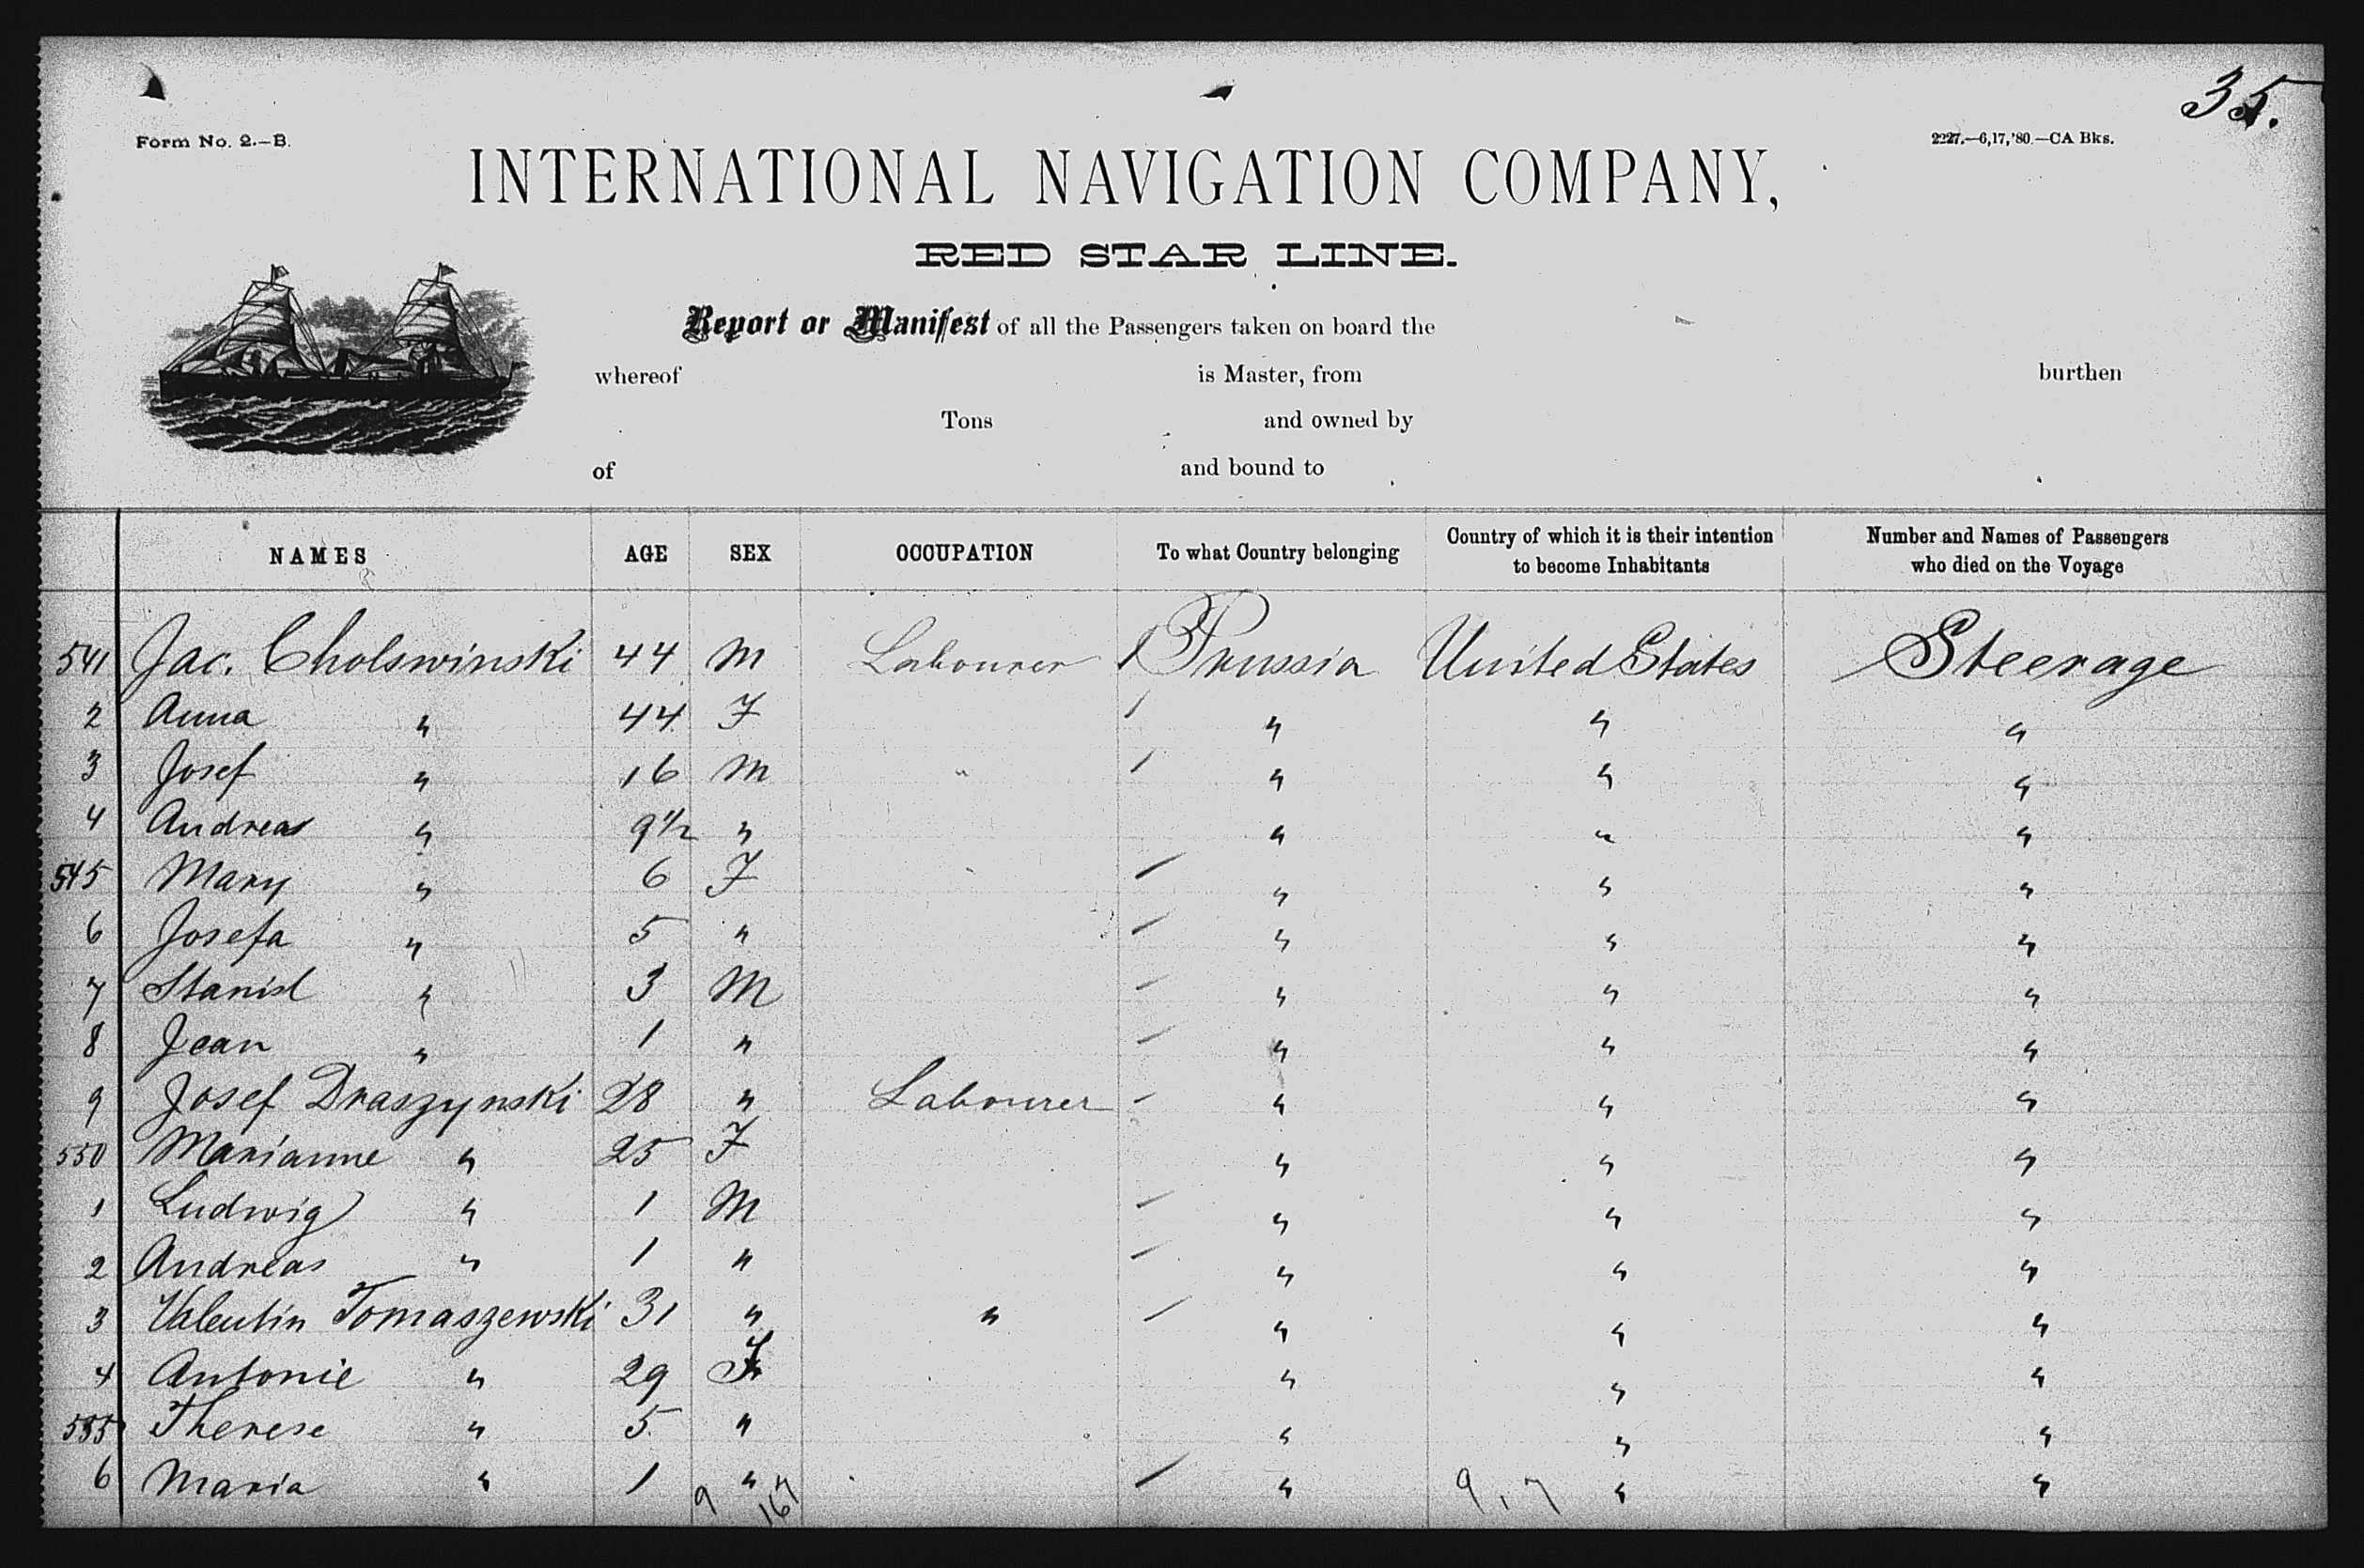 35.
Form No. 2.—B.
2227.—6,17,'80.—CA Bks.
INTERNATIONAL NAVIGATION COMPANY,
RED STAR LINE.
Report or Manifest of all the Passengers taken on board the
whereof is Master, from burthen
Tons and owned by
of and bound to
NAMES AGE SEX OCCUPATION To what Country belonging Country of which it is their intention to become Inhabitants Number and Names of Passengers who died on the Voyage
541 Jac. Cholswinski 44 M Labourer / Prussia United States Steerage
2 Anna " 44 F / " " "
3 Josef " 16 M " / " " "
4 Andreas " 9 1/2 " " " "
545 Mary " 6 F / " " "
6 Josefa " 5 " / " " "
7 Stanisl " 3 M / " " "
8 Jean " 1 " / " " "
9 Josef Draszynski 28 " Labourer - " " "
550 Marianne " 25 F " " "
1 Ludwig " 1 M / " " "
2 Andreas " 1 " / " " "
3 Valentin Tomaszewski 31 " " / " " "
4 Antonie " 29 F " " "
555 Therese " 5 " " " "
6 Maria " 1 " / " " "
9 167 9,7